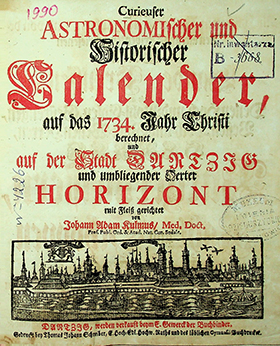 1990
Curieuser
ASTRONOMischer und
Historischer
Calender,
auf das 1734. Jahr Christi
berechnet,
und
auf der Stadt DANTZIG
und umbliegender Oerter
HORIZONT
mit Fleiß gerichtet
von
Johann Adam Kulmus / Med. Doct.
Prof. Publ. Ord. & Acad. Nat. Cur. Sodale.
DANTZIG, werden verkauft beym E. Gewerck der Buchbinder.
Gedruckt bey Thomas Johann Schreiber, E. Hoch-Edl. Hochw. Raths und des löblichen Gymnasii Buchdrucker.
Nr. inwentarza
B